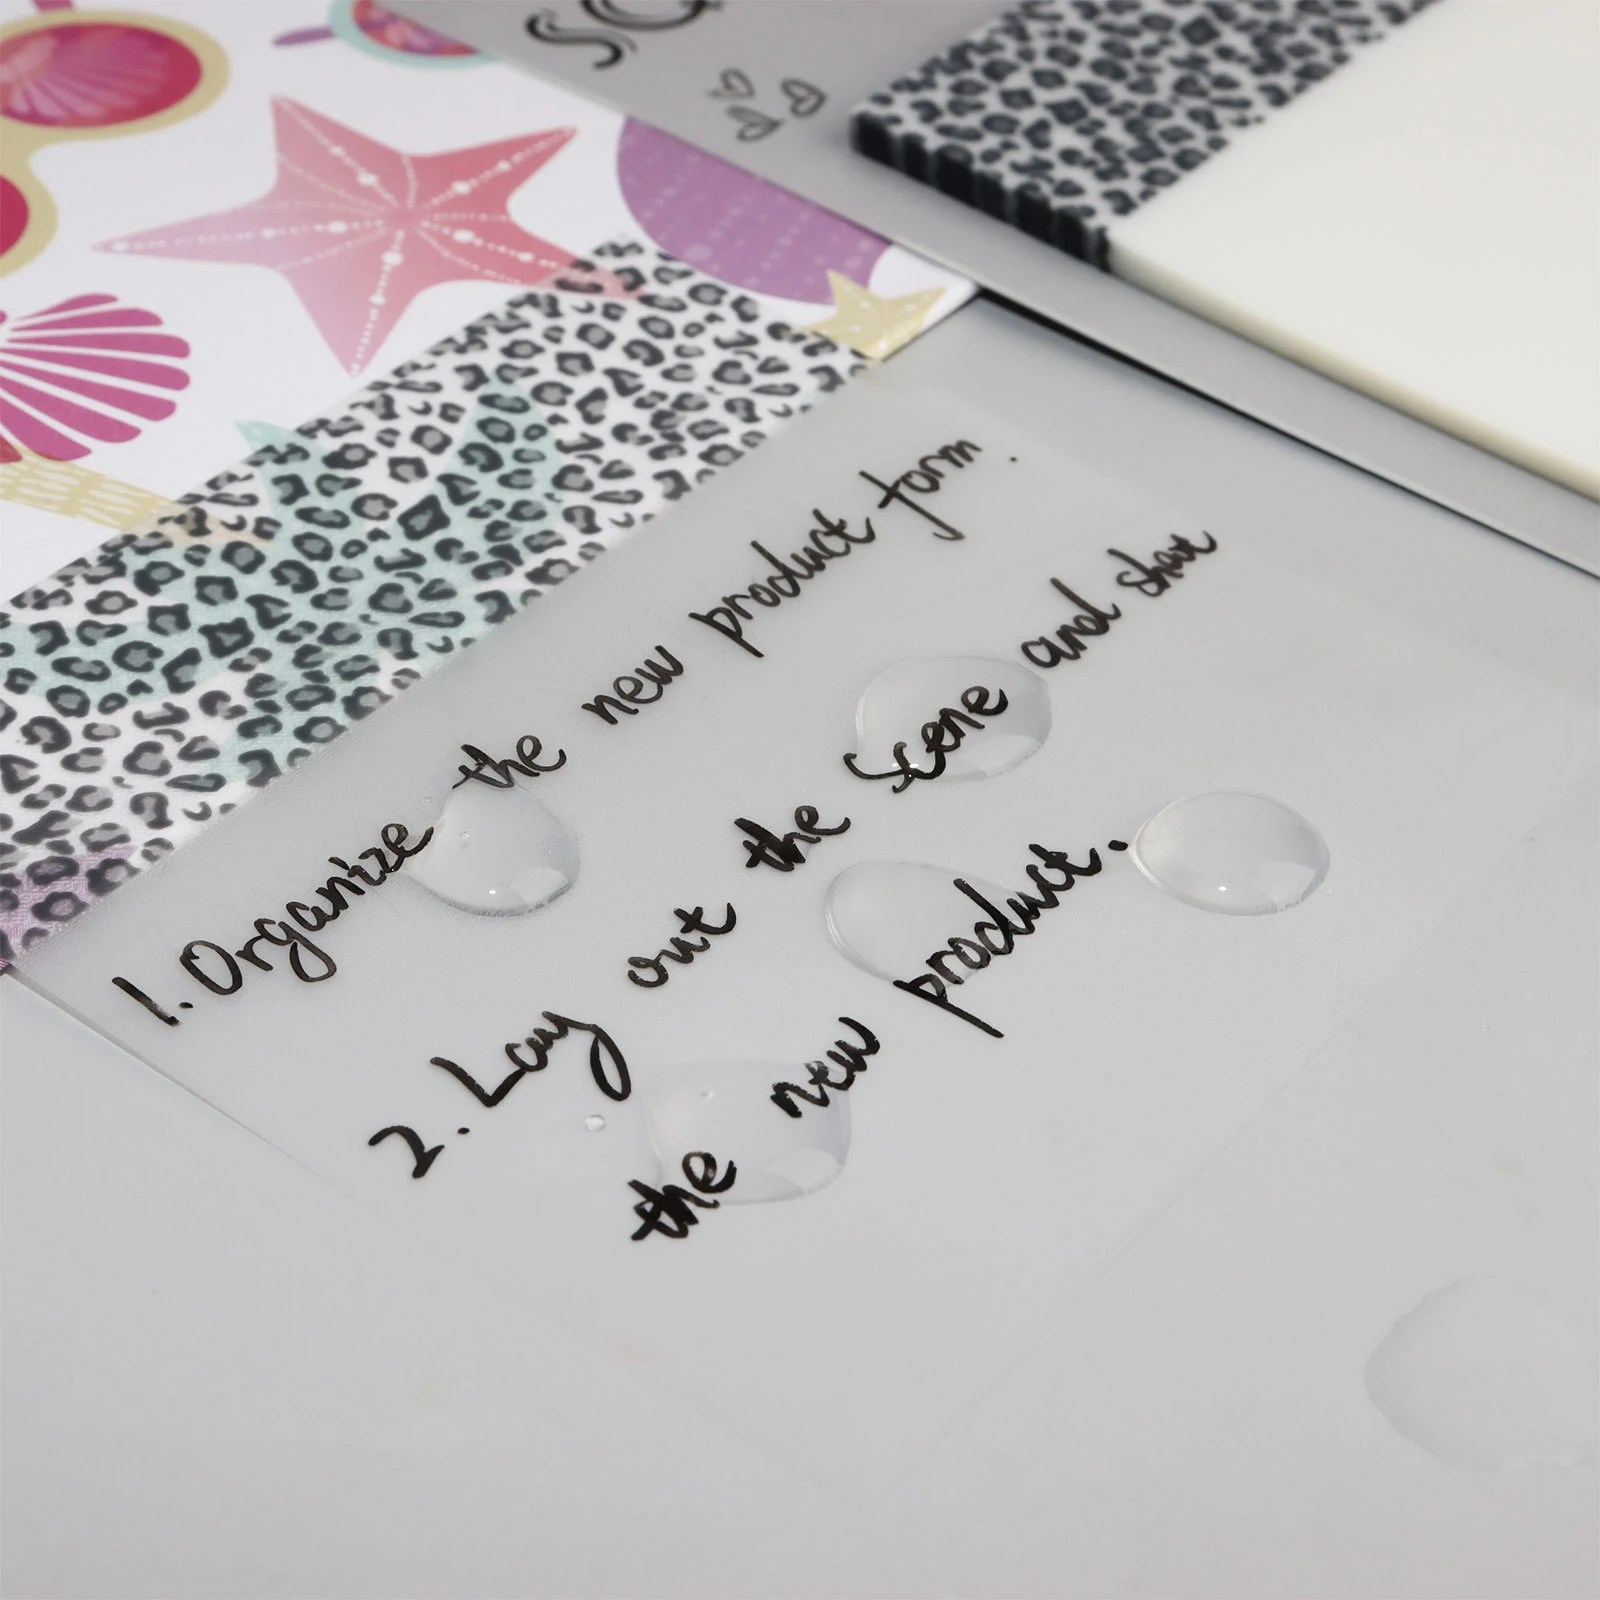 SQ
1. Organize the new product form.
2. Lay out the scene and shoot
the new product.